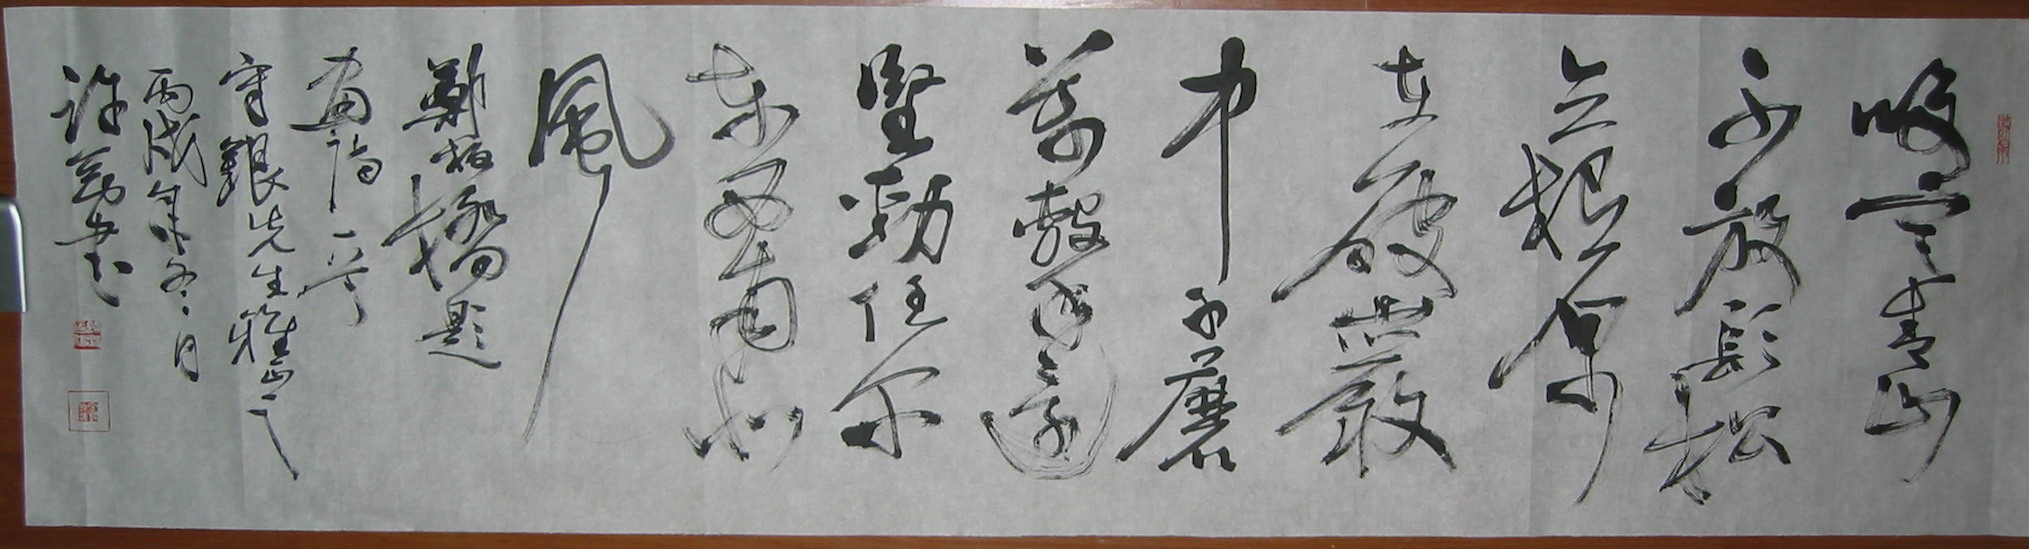 咬定青山
不放鬆
立根原
在破巖
中千磨
萬擊還
堅勁任尔
東西南北
風
鄭板橋題
畫詩一首
守銀先生雅正
丙戌年冬月
許 书